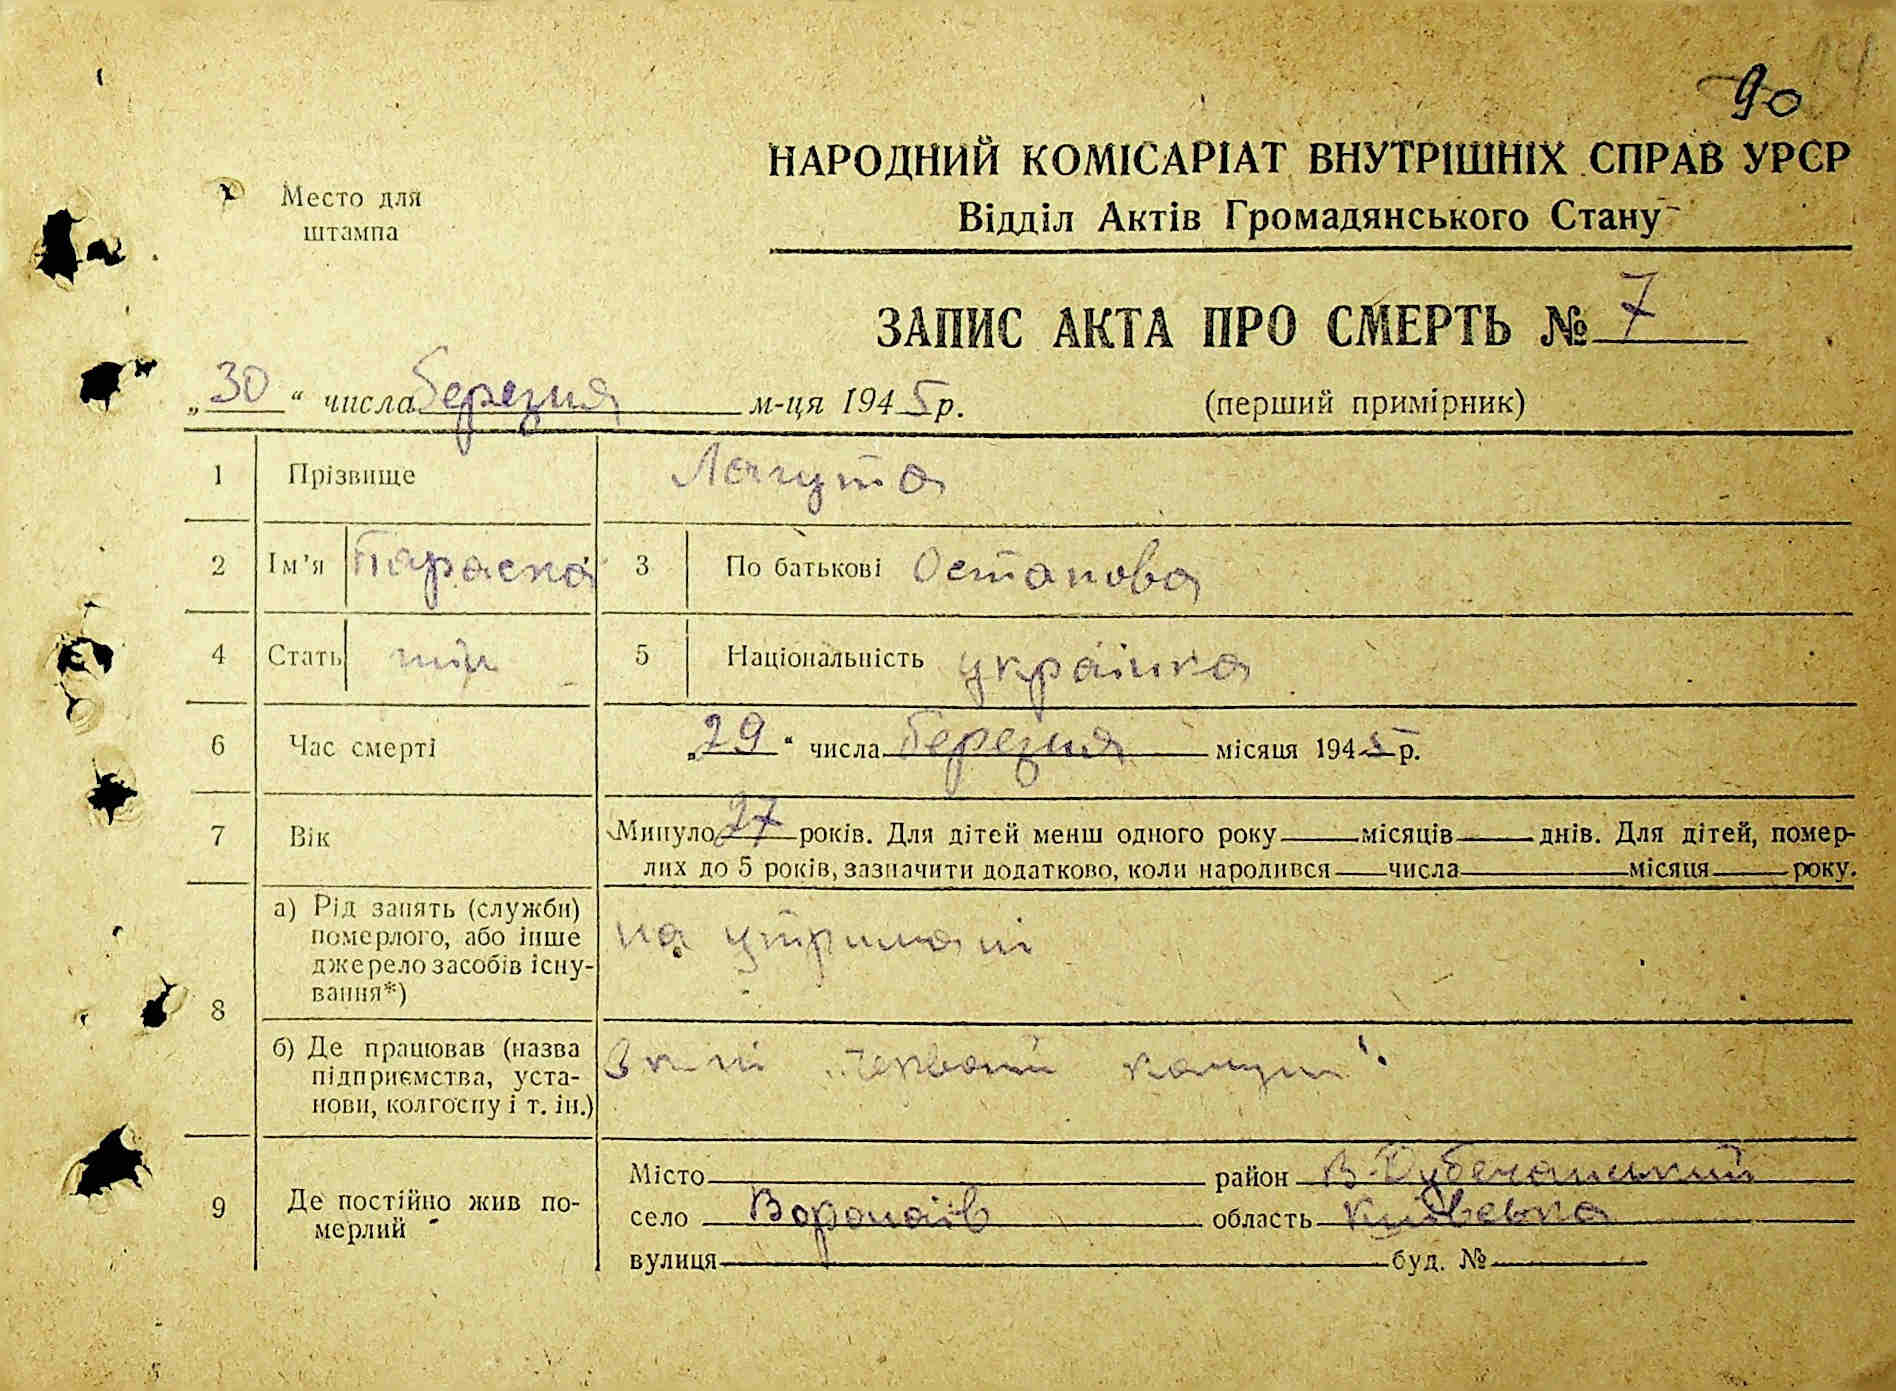 90
НАРОДНИЙ КОМІСАРІАТ ВНУТРІШНІХ СПРАВ УРСР
Место для штампа
Відділ Актів Громадянського Стану
ЗАПИС АКТА ПРО СМЕРТЬ № 7
„30“ числа березня м-ця 1945 р. (перший примірник)
1 Прізвище Лагута
2 Ім'я Параска 3 По батькові Остапова
4 Стать жін 5 Національність українка
6 Час смерті „29“ числа березня місяця 1945 р.
7 Вік Минуло 27 років. Для дітей менш одного року місяців днів. Для дітей, помер-
лих до 5 років, зазначити додатково, коли народився числа місяця року.
8 а) Рід занять (служби)
померлого, або інше
джерело засобів існу-
вання*)
на утримані
б) Де працював (назва
підприємства, уста-
нови, колгоспу і т. ін.)
9 Де постійно жив по-
мерлий
Місто район В-Дубечанський
село Воропаїв область Київська
вулиця буд. №